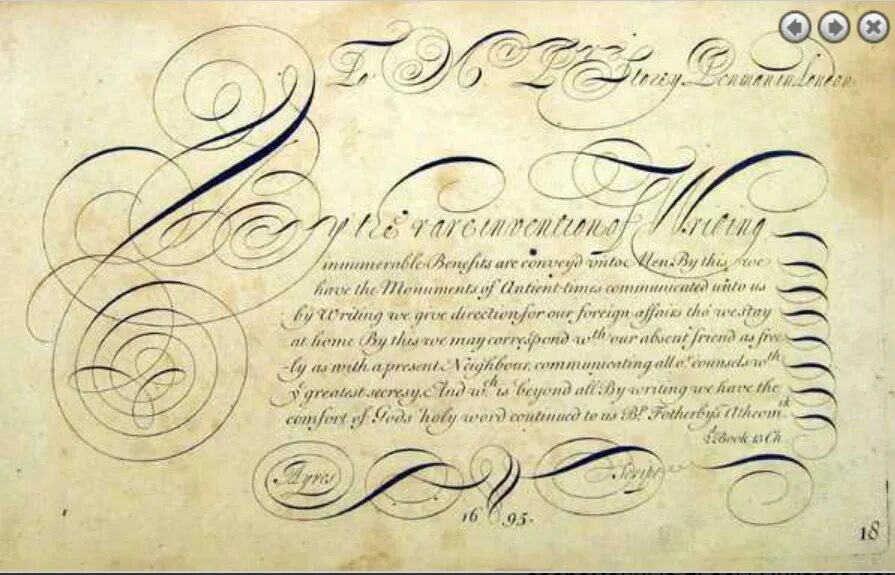 To Mr Storey Penman in London
By the rare invention of Writing
innumerable Benefits are convey'd unto Men. By this we
have the Monuments of Antient times communicated unto us
by Writing we give direction for our foreign affairs tho' we stay
at home By this we may correspond wth our absent friend as free-
-ly as with a present Neighbour, communicating all or counsels wth
ye greatest secresy. And wch is beyond all By writing we have the
comfort of Gods holy word continued to us Bp. Fotherby's Atheom
Book 13 Ch
Ayres Scrips
1695.
18